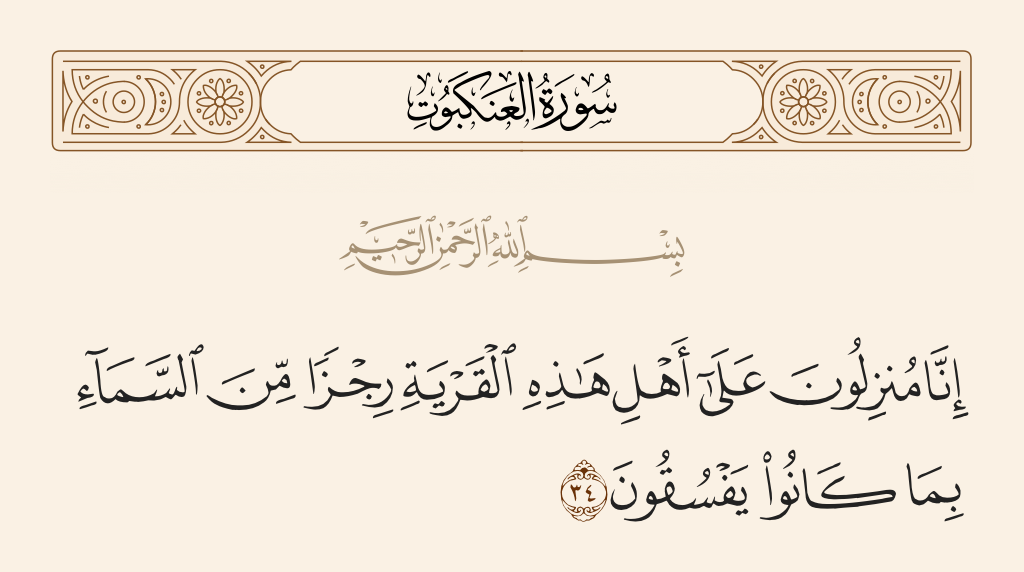 سُورَةُ العَنكَبُوتِ
بِسْمِ ٱللَّهِ ٱلرَّحْمَٰنِ ٱلرَّحِيمِ
إِنَّا مُنزِلُونَ عَلَىٰٓ أَهْلِ هَٰذِهِ ٱلْقَرْيَةِ رِجْزًا مِّنَ ٱلسَّمَآءِ
بِمَا كَانُوا۟ يَفْسُقُونَ ٣٤